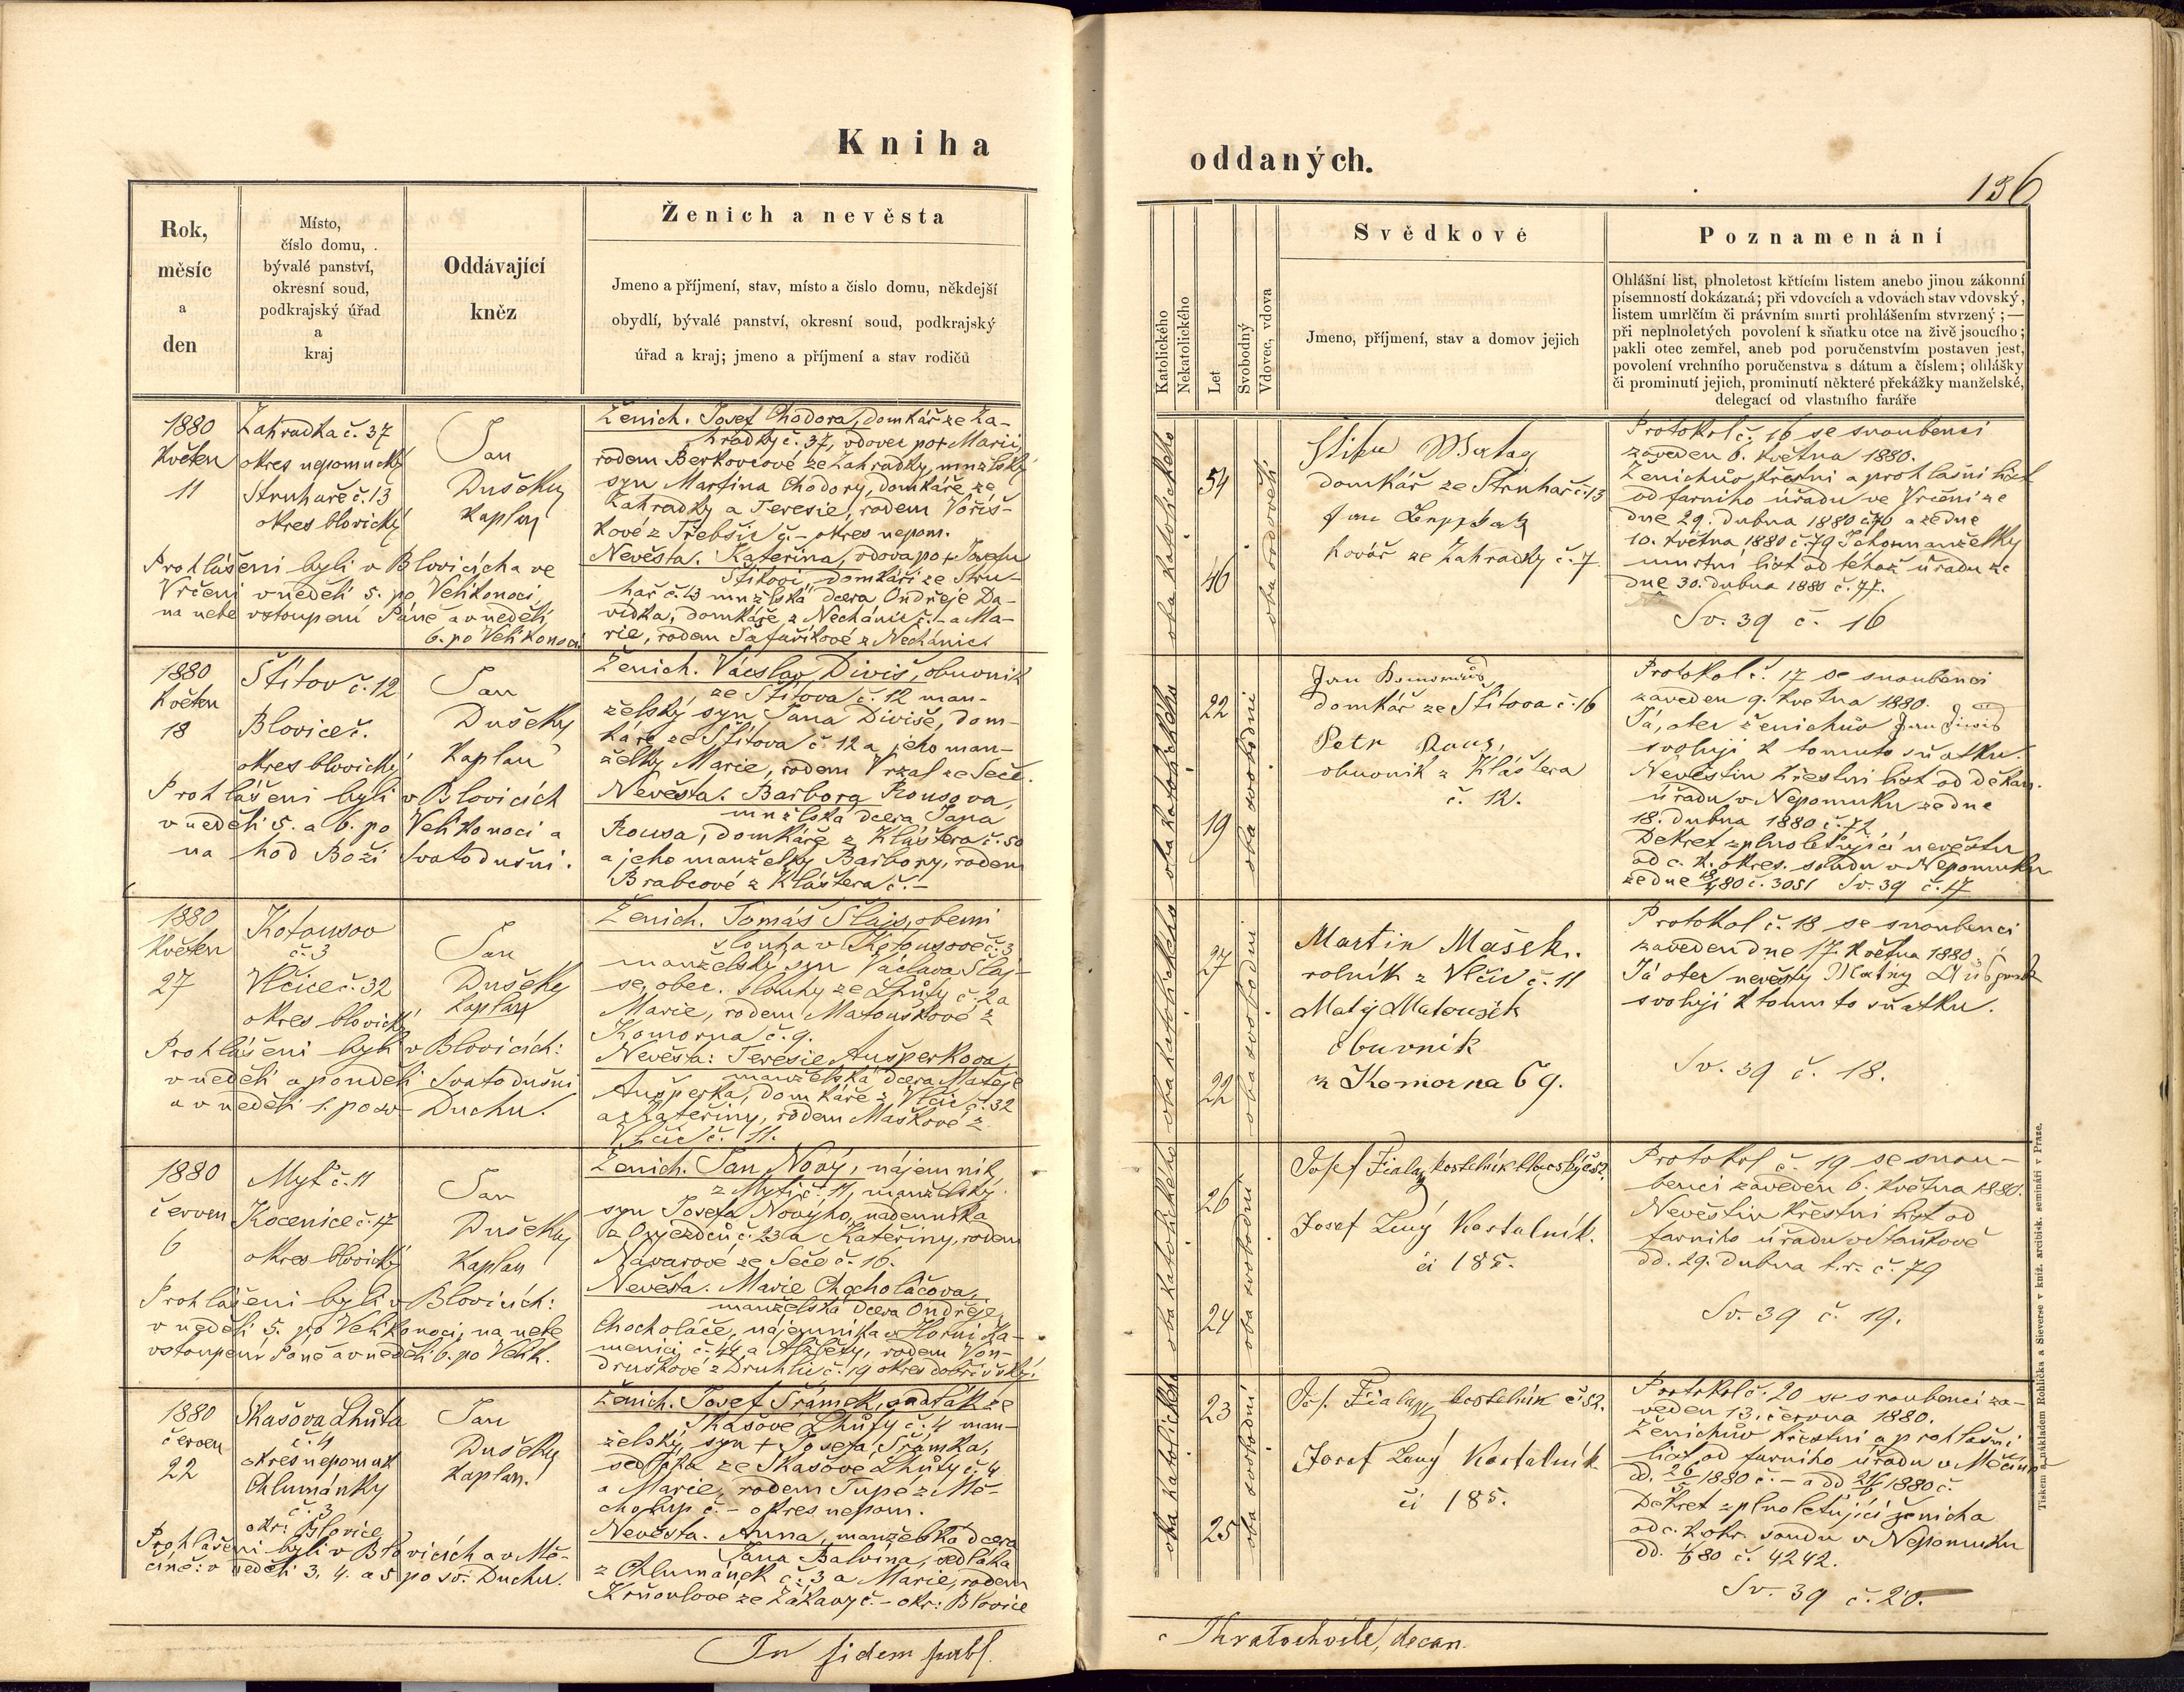 Kniha
oddaných.
136
Rok,
měsíc
a
den
Místo,
číslo domu,
bývalé panství,
okresní soud,
podkrajský úřad
a
kraj
Oddávající
kněz
Ženich a nevěsta
Jmeno a příjmení, stav, místo a číslo domu, někdejší
obydlí, bývalé panství, okresní soud, podkrajský
úřad a kraj; jmeno a příjmení a stav rodičů
Katolického
Nekatolického
Let
Svobodný
Vdovec, vdova
Svědkové
Jmeno, příjmení, stav a domov jejich
Poznamenání
Ohlášní list, plnoletost křtícím listem anebo jinou zákonní
písemností dokázaná; při vdovcích a vdovách stav vdovský,
listem umrlčím či právním smrti prohlášením stvrzený; —
při neplnoletých povolení k sňatku otce na živě jsoucího;
pakli otec zemřel, aneb pod poručenstvím postaven jest,
povolení vrchního poručenstva s dátum a číslem; ohlášky
či prominutí jejich, prominutí některé překážky manželské,
delegací od vlastního faráře
1880
Květen
11
Zahradka č. 37
okres nepomucký
Struhaře č. 13
okres blovický
Jan
Dušeky
Kaplan
Prohlášeni byli v Blovicích a ve
Vrčeni v neděli 5. po Velikonoci,
na nebe vstoupení Páně a v neděli
6. po Velikonoci
Ženich. Josef Chodora, domkář ze Za-
hradky č. 37, vdovec po † Marii,
rodem Berkovcové ze Zahradky, mnžlský
syn Martina Chodory, domkáře ze
Zahradky a Teresie, rodem Voříš-
kové z Třebčic č. - okres nepom.
Nevěsta. Kateřina, vdova po † Josefu
Štikovi, domkáři ze Stru-
hař č. 13 mnžlská dcera Ondřeje Da-
vidka, domkáře z Nechánic č. - a Ma-
rie, rodem Šafaříkové z Nechánic
oba katolického
54
46
oba vdovští
domkář ze Struhař č. 13
kovář ze Zahradky č. 7.
Protokol č. 16 se snoubenci
zaveden 6. května 1880.
Ženichův křestní a prohlašní list
od farního úřadu ve Vrčeni ze
dne 29. dubna 1880 č. 76 a ze dne
10. května 1880 č. 79 Jeho manželky
úmrtní list od téhož úřadu ze
dne 30. dubna 1880 č. 77.
Sv. 39 č. 16
1880
Květen
18
Štítov č. 12
Blovice č.
okres blovický
Jan
Dušeky
Kaplan
Prohlášeni byli v Blovicích
v neděli 5. a 6. po Velikonoci a
na hod Boží Svatodušní.
Ženich. Vácslav Diviš, obuvník
ze Štítova č. 12 man-
želský syn Jana Diviše, dom-
káře ze Štítova č. 12 a jeho man-
želky Marie, rodem Vrzal ze Seče.
Nevěsta. Barbora Rousova,
mnžlská dcera Jana
Rousa, domkáře z Kláštera č. 50
a jeho manželky Barbory, rodem
Brabcové z Kláštera č. -
oba katolického
22
19
oba svobodni
domkář ze Štítova č. 16
Petr Rous,
obuvník z Kláštera
č. 12.
Protokol č. 17 se snoubenci
zaveden 9. května 1880.
Já, otec ženichův Jan Diviš
svoluji k tomuto sňatku.
Nevěstin křestní list od děkan.
úřadu v Nepomuku ze dne
18. dubna 1880 č. 72
Dekret zplnoletňující nevěstu
od c. k. okres. soudu v Nepomuku
ze dne 18/4 80 č. 3051 Sv. 39 č. 17
1880
Květen
27
Kotousov
č. 3
Vlčice č. 32
okres blovický
Jan
Dušeky
Kaplan
Prohlášeni byli v Blovicích:
v neděli a pondělí Svatodušní
a v neděli 1. po sv. Duchu.
Ženich. Tomáš Šlajs, obecní
slouha v Kotousově č. 3
manželský syn Václava Šlaj-
se, obec. slouhy ze Lhůty č. 2 a
Marie, rodem Matouškové z
Komorna č. 9.
Nevěsta: Teresie Aušperkova
manželská dcera Matěje
Aušperka, domkáře z Vlčic č. 32
a Kateřiny, rodem Maškové z
Vlčic č. 11.
oba katolického
27
22
oba svobodni
Martin Mašek.
rolník z Vlčic č. 11
Matěj Matoušek
Obuvník
z Komorna č 9.
Protokol č. 18 se snoubenci
zaveden dne 17. května 1880
Já otec nevěsty
svoluji k tomuto sňatku.
Sv. 39 č. 18.
1880
červen
6
Myť č. 11
Kocenice č. 17
okres blovický
Jan
Dušeky
Kaplan
Prohlášeni byli v Blovicích:
v neděli 5. po Velikonoci, na nebe
vstoupení Páně a v neděli 6. po Velik.
Ženich. Jan Nový, nájemník
z Mytic č. 11, manželský
syn Josefa Novýho, nádenníka
z Oujezdců č. 23 a Kateřiny, rodem
Navarové ze Seče č. 16.
Nevěsta. Marie Chocholáčova,
manželská dcera Ondřeje
Chocholáče, nájemníka v Horní Ka-
menici č. 44 a Alžběty, rodem Von-
druškové z Druhlic č. 19 okres dobřišský.
oba katolického
26
24
oba svobodni
Josef Fiala, kostelník
Josef Lený Kostelník.
či 185.
Protokol č. 19 se snou-
benci zaveden 6. května 1880.
Nevěstin křestní list od
farního úřadu v Staňkově
dd. 29. dubna t. r. č. 79
Sv. 39 č. 19.
1880
červen
22
Skašova Lhůta
č. 4
okres nepomuk
Chlumánky
č. 3
okr: Blovice
Jan
Dušeky
Kaplan.
Prohlášeni byli v Blovicích a v Mě-
číně: v neděli 3. 4. a 5 po sv. Duchu.
Ženich. Josef Šrámek, sedlák ze
Skašové Lhůty č. 4 man-
želský syn † Josefa Šrámka,
sedláka ze Skašové Lhůty č. 4
a Marie, rodem Tupé z Mě-
cholup č. - okres nepom.
Nevěsta. Anna, manželská dcera
Jana Balvína, sedláka
z Chlumánek č. 3 a Marie, rodem
Krňoulové ze Žákavy č. - okr: Blovice
oba katolického
23
25
oba svobodni
Jos. Fiala, kostelník č 52.
Josef Lený Kostelník
či 185.
Protokol č. 20 se snoubenci za-
veden 13. června 1880.
Ženichův křestní a prohlašní
list od farního úřadu v Měčíně
dd. 26/5 1880 č. - a dd 21/6 1880 č.
Dekret zplnoletňující ženicha
od c. k. okr. soudu v Nepomuku
dd. 1/6 80 č. 4242.
Sv. 39 č. 20.
In fidem publ.
Chvatochvile, decan.
Tiskem a nákladem Rohlíčka a Sieverse v kníž. arcibisk. semináři v Praze.